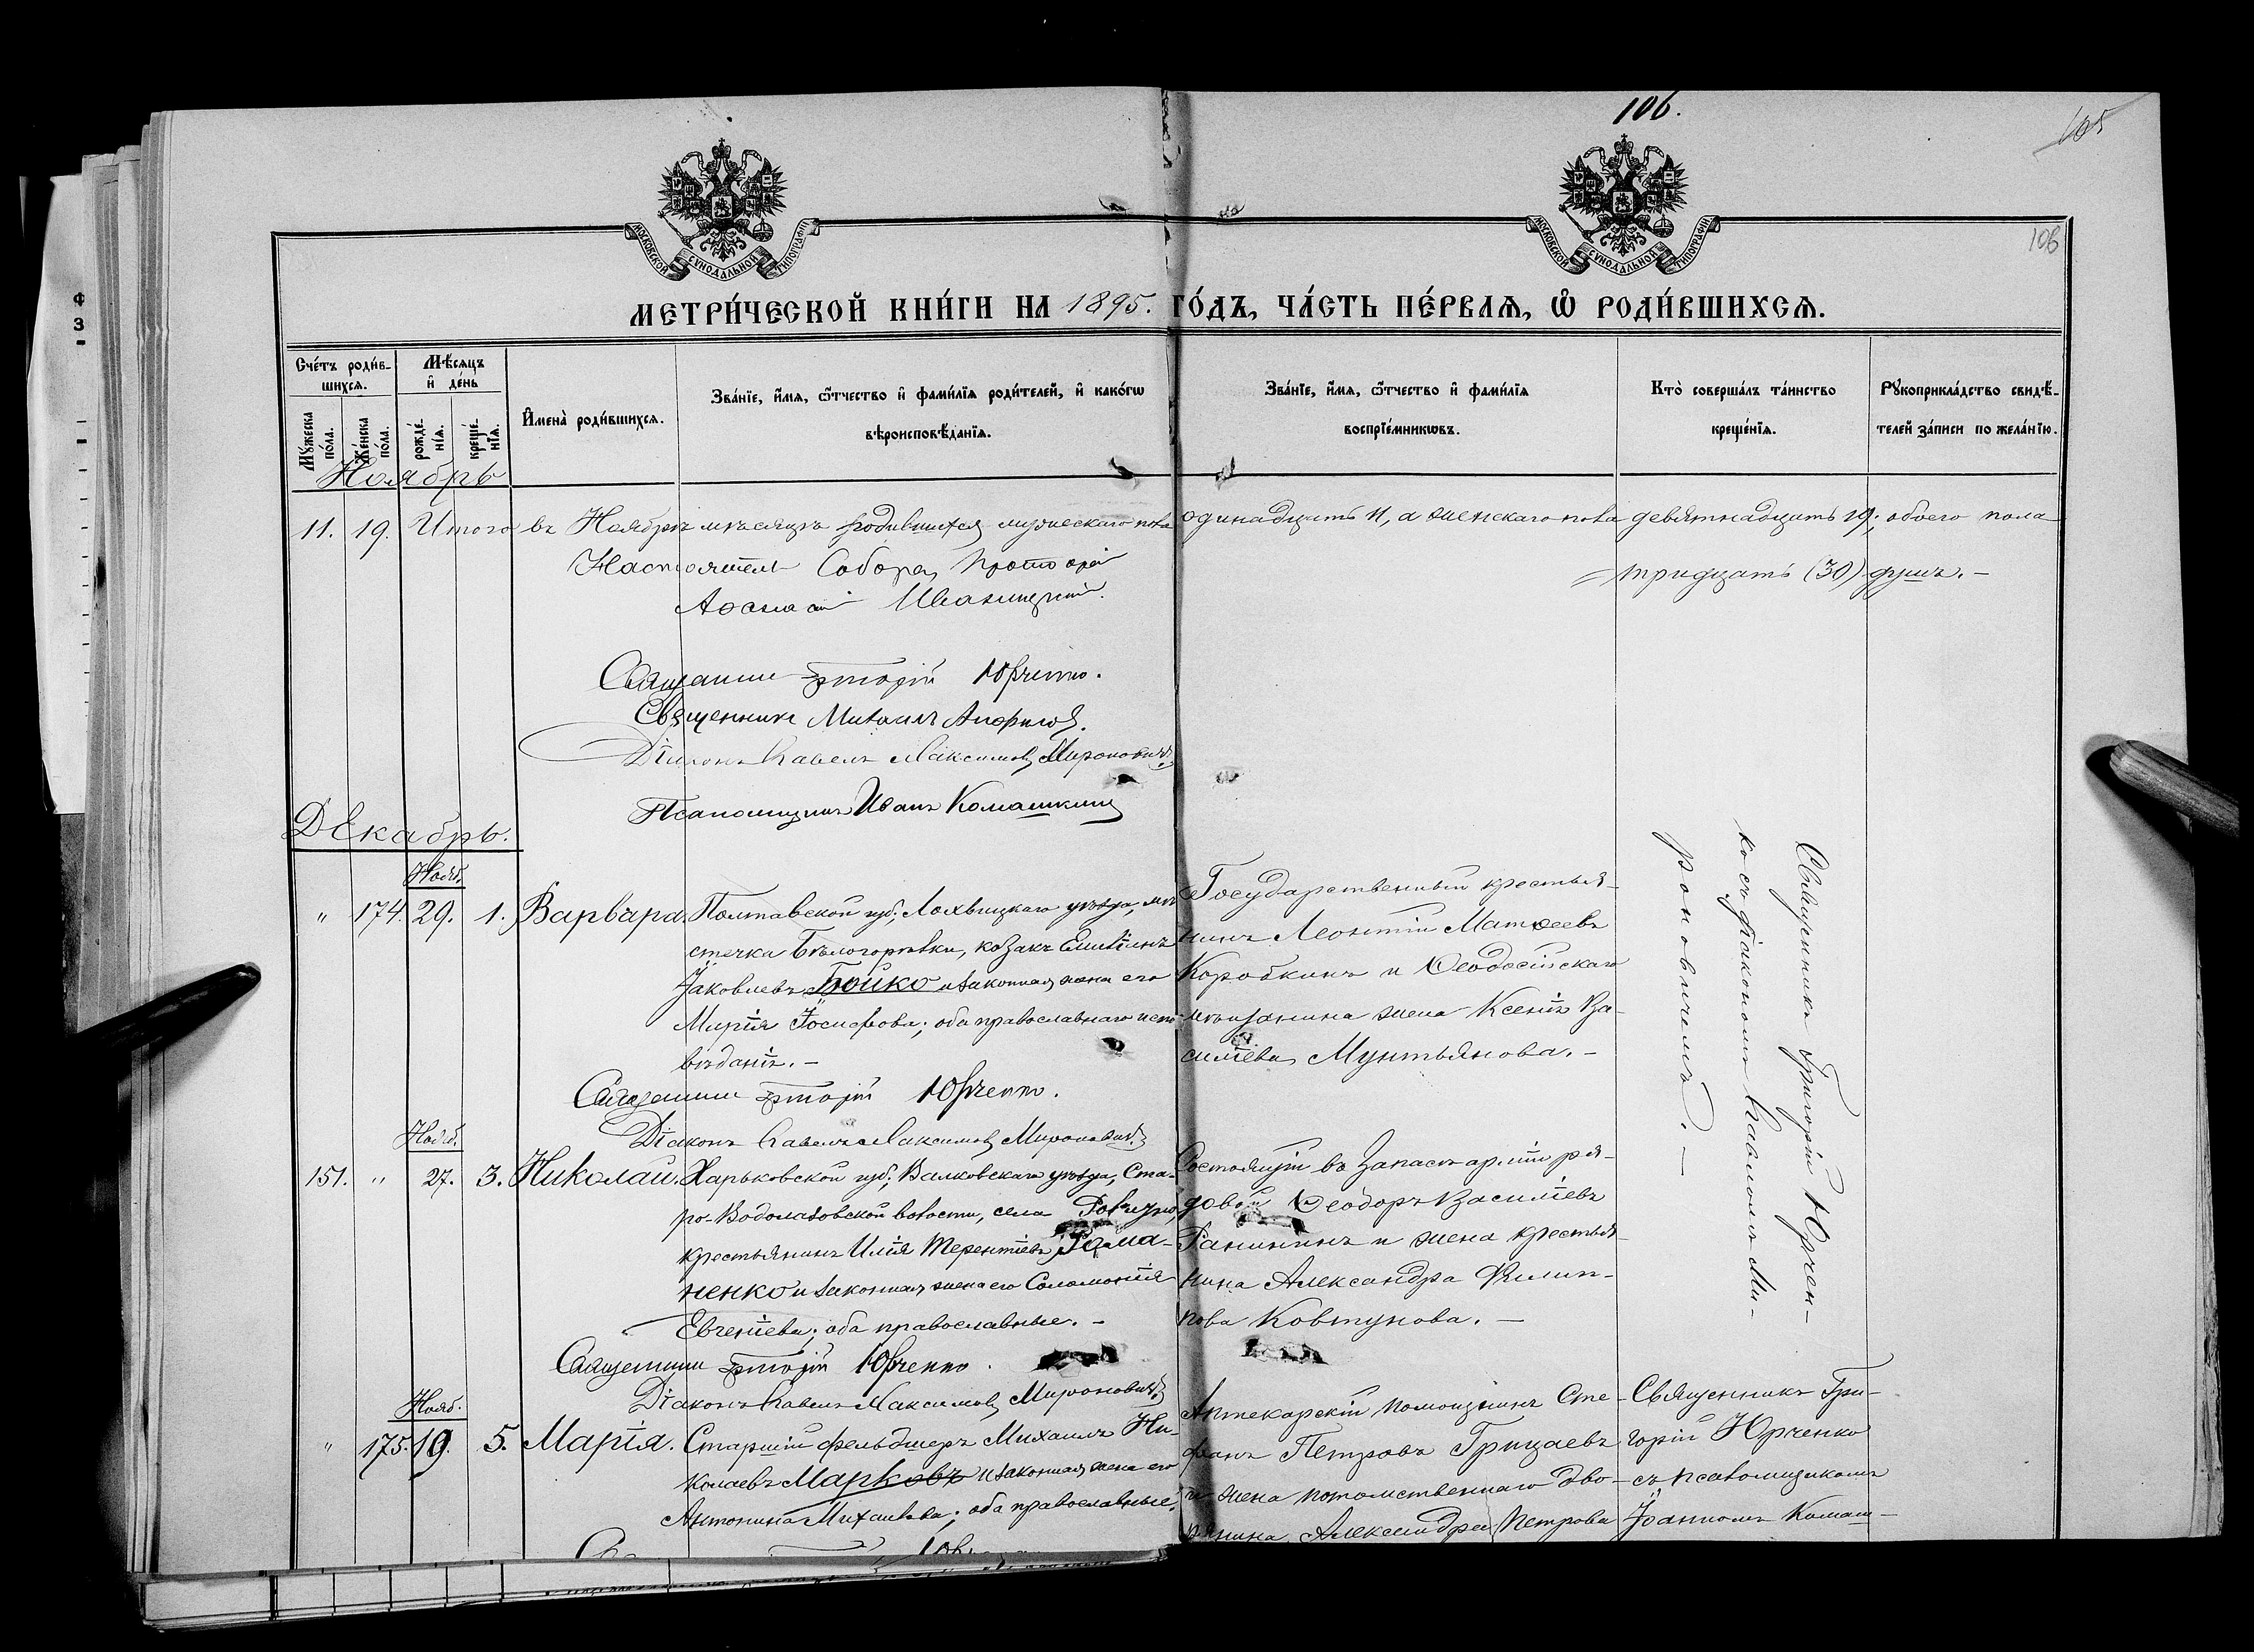 106.
105
106
МОСКОВСКОЙ СѴНОДАЛЬНОЙ ТИПОГРАФІИ
МОСКОВСКОЙ СѴНОДАЛЬНОЙ ТИПОГРАФІИ
МЕТРИ́ЧЕСКОЙ КНИ́ГИ НА 1895. ГО́ДЪ, ЧА́СТЬ ПЕ́РВАѦ, Ѽ РОДИ́ВШИХСѦ.
Сче́тъ роди́в-
шихсѧ.
Мѣ́сяцъ
и҆ де́нь
Мꙋ́жеска по́ла.
Же́нска по́ла.
рожде́-нїѧ.
креще́-нїѧ.
И҆мена̀ роди́вшихсѧ.
Зва́нїе, и҆́мѧ, ѻ҆́тчество и҆ фами́лїѧ роди́телей, и҆ како́гѡ
вѣроисповѣ́данїѧ.
Зва́нїе, и҆́мѧ, ѻ҆́тчество и҆ фами́лїѧ
воспрїе́мникѡвъ.
Кто̀ соверша́лъ та́инство
креще́нїѧ.
Рꙋкоприкла́дство свидѣ́-
телей за́писи по жела́нїю.
Ноябрь
11. 19. Итого въ Ноябрѣ мѣсяцѣ родившихся мужескаго пола одинадцать 11, а женскаго пола девятнадцать 19; обоего пола
тридцать (30) душъ. –
Настоятель Собора, Протоіерей
Священникъ Григорій Юрченко.
Священникъ Михаилъ
Діаконъ Павелъ Максимов. Мироновичъ
Псаломщикъ Иванъ Комашкинъ
Декабрь.
Нояб.
" 174. 29. 1. Варвара. Полтавской губ; Лохвицкаго уѣзда, мѣ-
стечка Бѣлогорѣлки, козакъ
Іаковлевъ Бойко и законная жена его
Марія Іосифова; оба православнаго испо-
вѣданія. –
Государственный крестья-
нинъ Леонтій Матѳеевъ
Коробкинъ и Ѳеодосійскаго
мѣщанина жена Ксенія Ва-
силіева Мунтьянова. –
Священникъ Григорій Юрченко
ко съ діакономъ Павломъ Ми-
роновичемъ. –
Священникъ Григорій Юрченко.
Діаконъ Павелъ Максимов. Мироновичъ
Нояб.
151. " 27. 3. Николай. Харьковской губ; Валковскаго уѣзда, Ста-
ро-Водолазовской волости, села
крестьянинъ Илія Терентіевъ Рома-
ненко и законная жена его Соломонія
Евгеніева; оба православные. –
Состоящій въ запасѣ арміи ря-
довой Ѳеодоръ Василіевъ
Ранининъ и жена крестья-
нина Александра Филип-
пова Ковтунова. –
Священникъ Григорій Юрченко.
Діаконъ Павелъ Максимов. Мироновичъ
Нояб.
" 175. 19. 5. Марія. Старшій фельдшеръ Михаилъ Ни-
колаевъ Марковъ и законная жена его
Антонина Михаилова; оба православные.
Аптекарскій помощникъ Сте-
фанъ Петровъ Грицаевъ
и жена потомственнаго дво-
рянина Александра Петрова
Священникъ Гри-
горій Юрченко
съ псаломщикомъ
Іоанномъ Комаш-